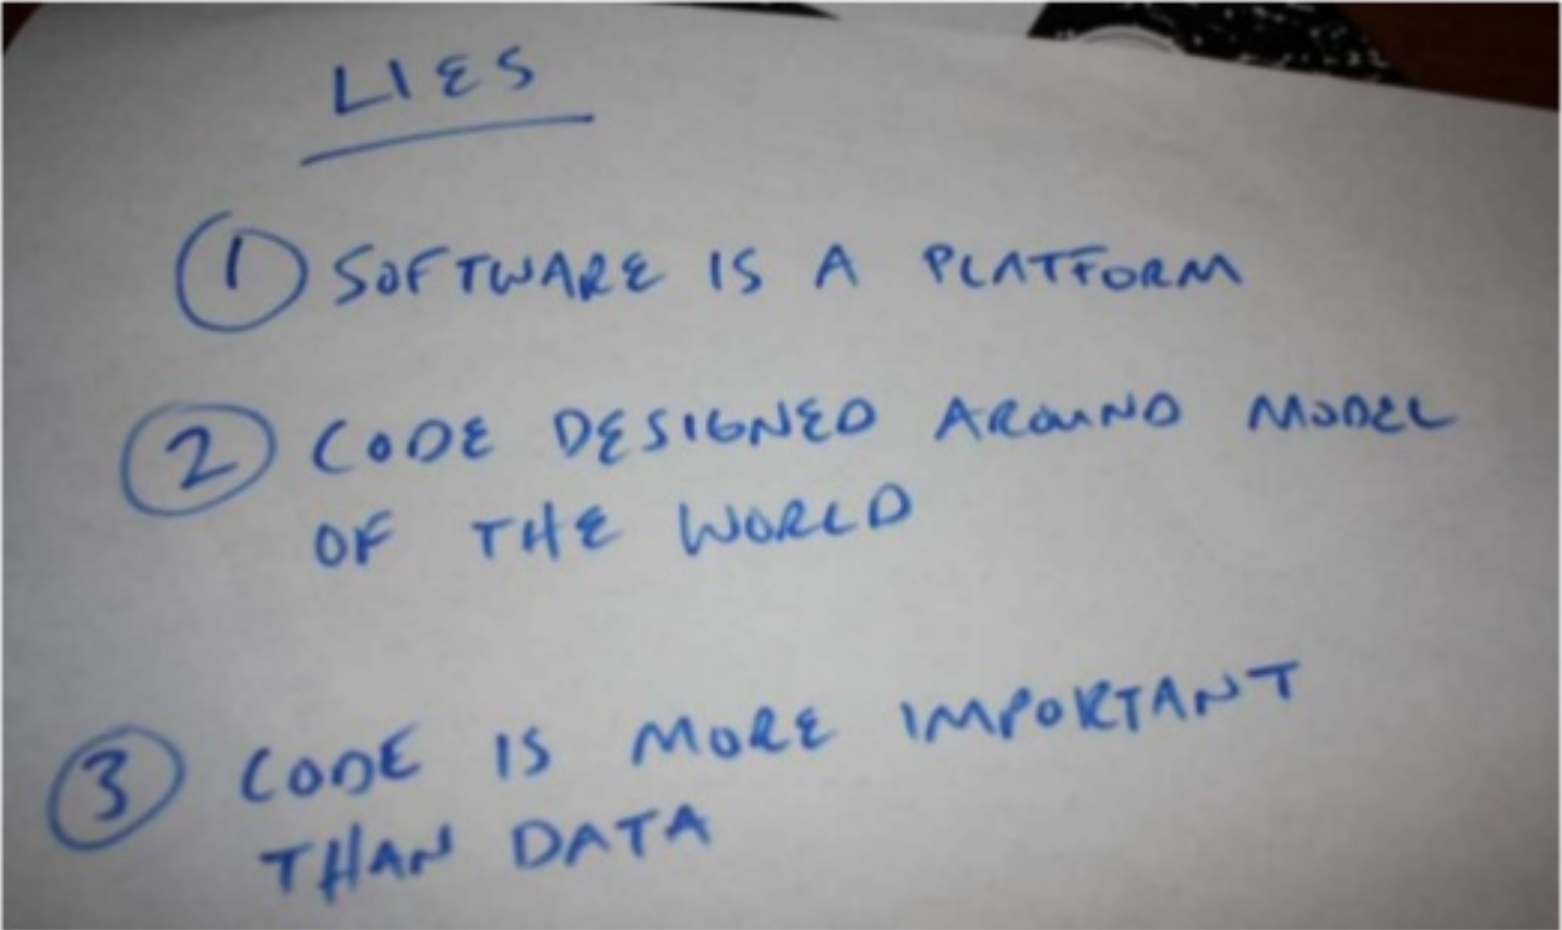 LIES
① SOFTWARE IS A PLATFORM
② CODE DESIGNED AROUND MODEL
OF THE WORLD
③ CODE IS MORE IMPORTANT
THAN DATA